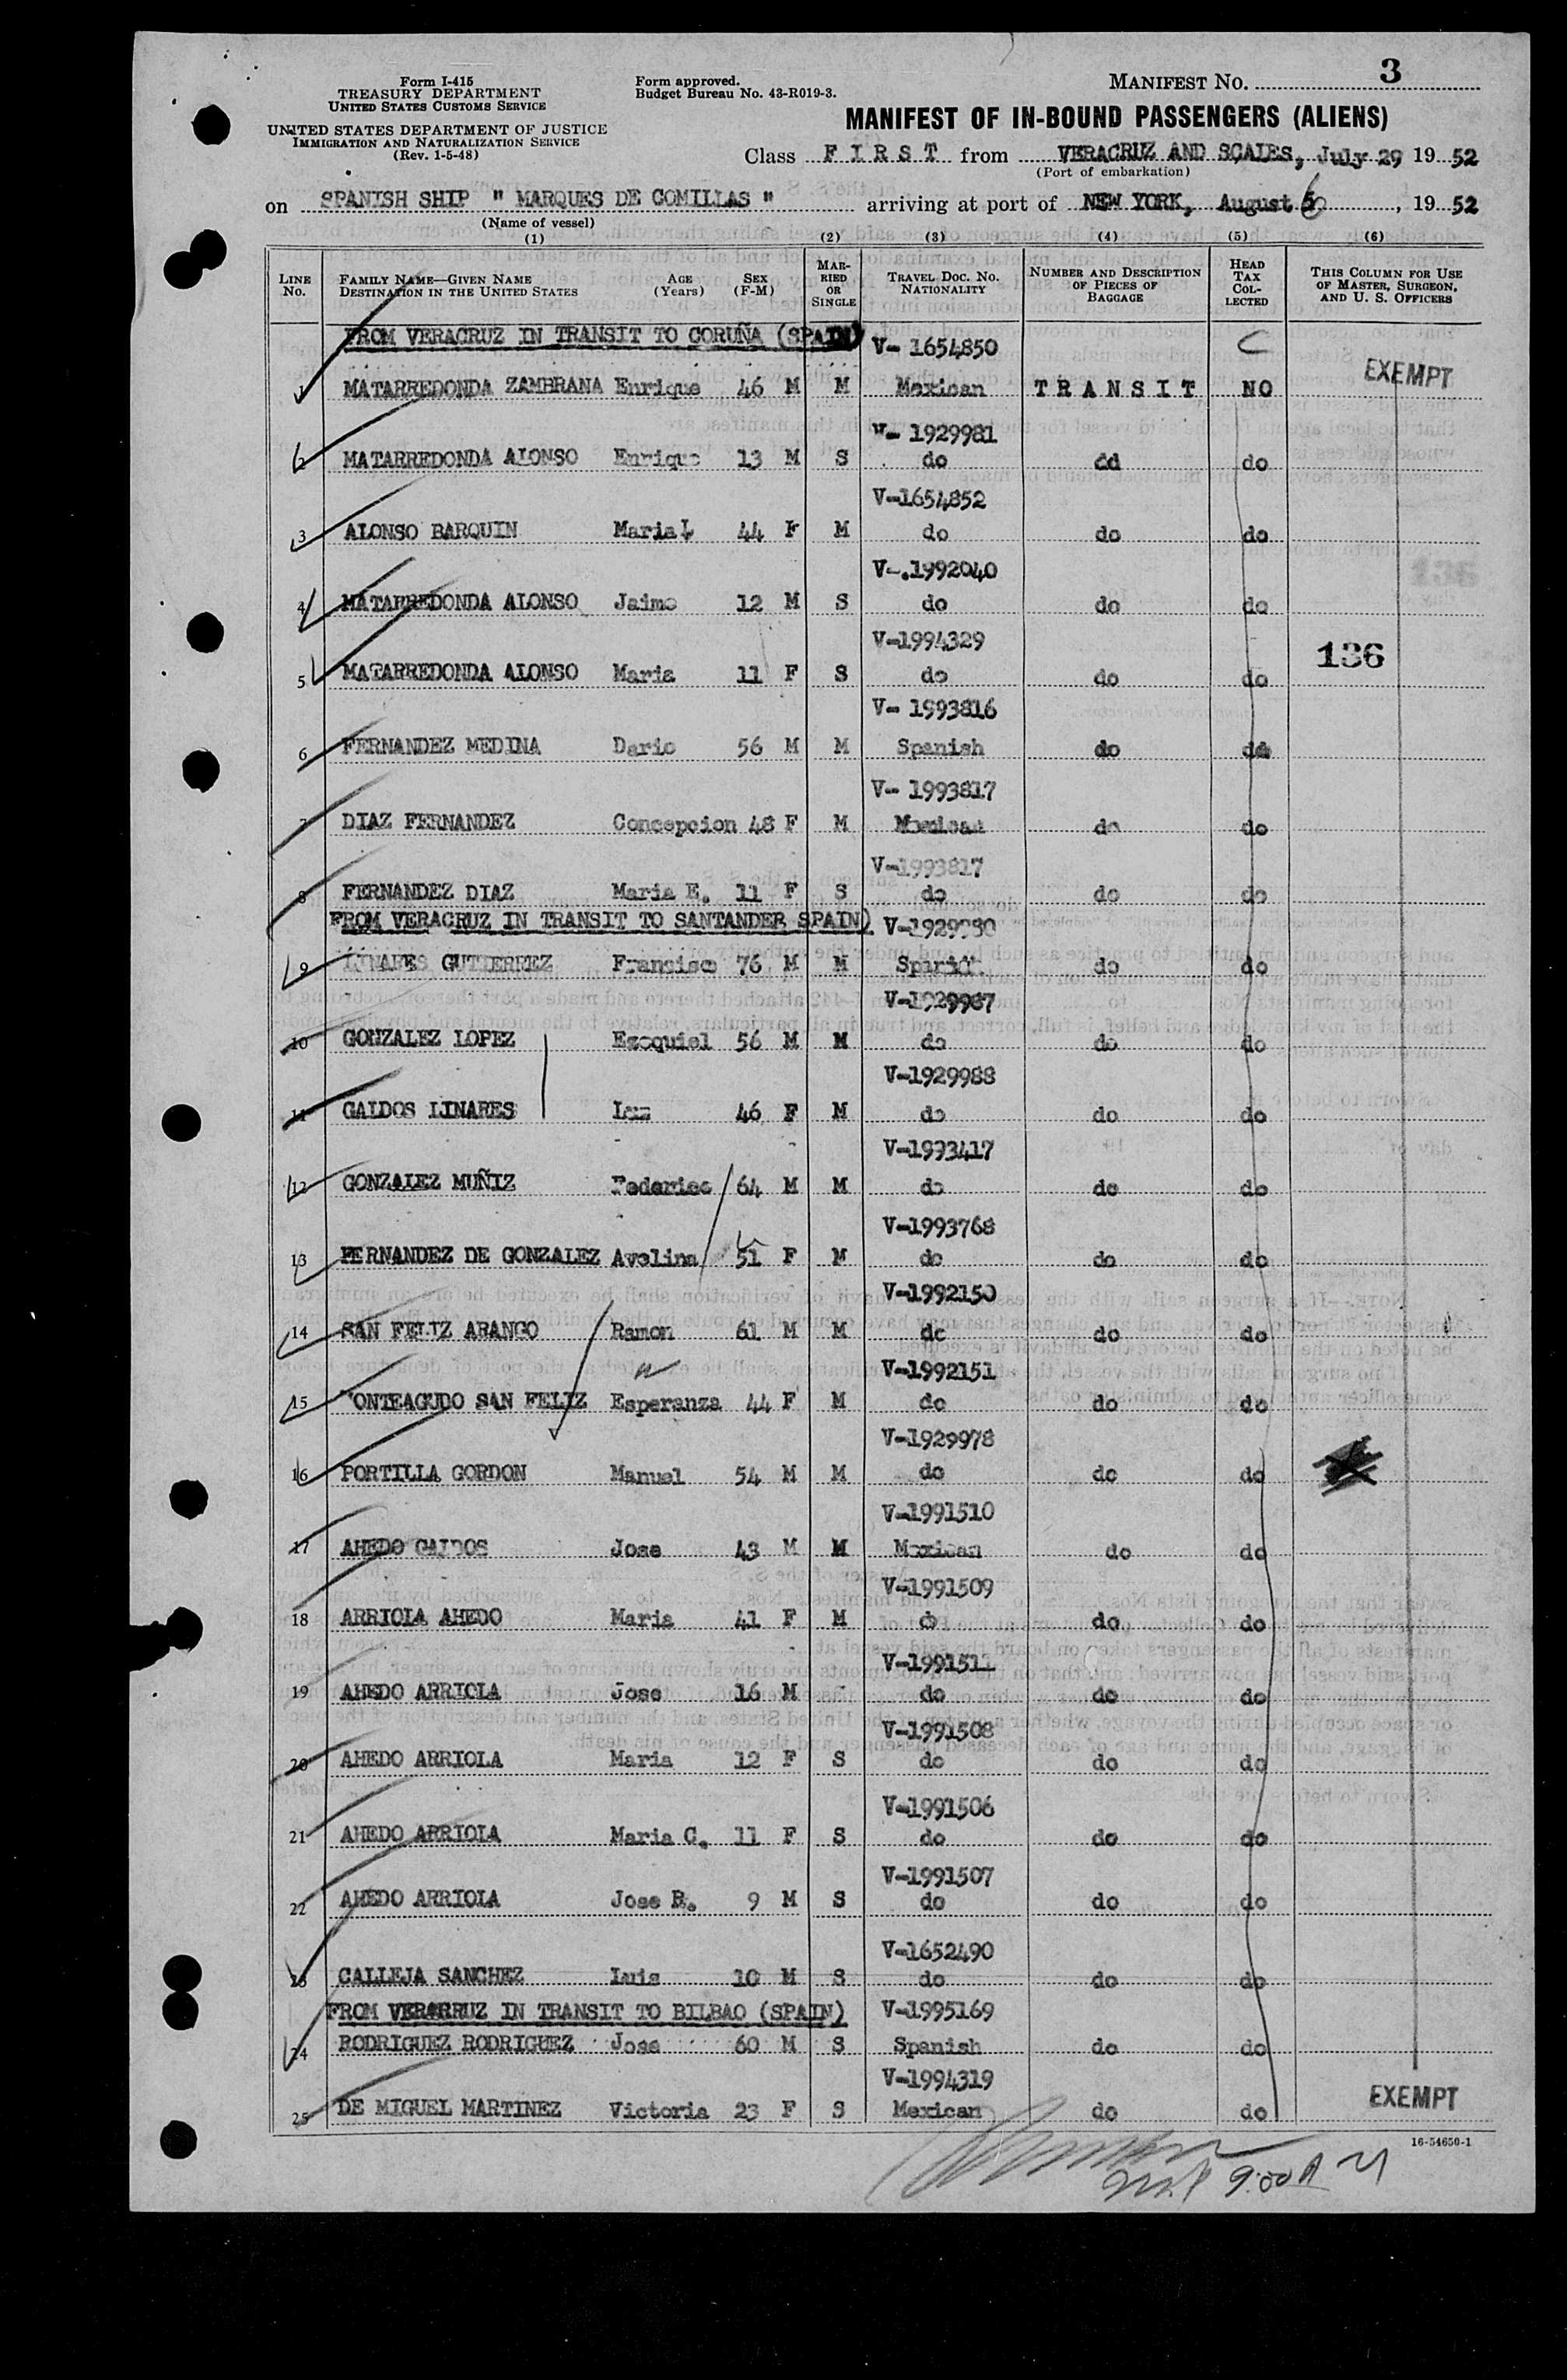 Form I-415
TREASURY DEPARTMENT
UNITED STATES CUSTOMS SERVICE
UNITED STATES DEPARTMENT OF JUSTICE
IMMIGRATION AND NATURALIZATION SERVICE
(Rev. 1-5-48)
Form approved.
Budget Bureau No. 43-R019-3.
MANIFEST NO. 3
MANIFEST OF IN-BOUND PASSENGERS (ALIENS)
Class FIRST from VERACRUZ AND SCALES, July 29 1952
(Port of embarkation)
on SPANISH SHIP " MARQUES DE COMILLAS " arriving at port of NEW YORK, August 6, 1952
(Name of vessel)
(1) (2) (3) (4) (5) (6)
LINE NO. FAMILY NAME—GIVEN NAME DESTINATION IN THE UNITED STATES AGE (Years) SEX (F-M) MARRIED OR SINGLE TRAVEL DOC. NO. NATIONALITY NUMBER AND DESCRIPTION OF PIECES OF BAGGAGE HEAD TAX COLLECTED THIS COLUMN FOR USE OF MASTER, SURGEON, AND U. S. OFFICERS
FROM VERACRUZ IN TRANSIT TO CORUÑA (SPAIN) V- 1654850
1 MATARREDONDA ZAMBRANA Enrique 46 M M Mexican TRANSIT NO EXEMPT
V- 1929981
2 MATARREDONDA ALONSO Enrique 13 M S do dd do
V-1654852
3 ALONSO BARQUIN Maria L 44 F M do do do
V-.1992040
4 MATARREDONDA ALONSO Jaime 12 M S do do do
V-1994329
5 MATARREDONDA ALONSO Maria 11 F S do do do 136
V- 1993816
6 FERNANDEZ MEDINA Dario 56 M M Spanish do do
V- 1993817
7 DIAZ FERNANDEZ Concepcion 48 F M Mexican do do
V-1993817
8 FERNANDEZ DIAZ Maria E. 11 F S do do do
FROM VERACRUZ IN TRANSIT TO SANTANDER SPAIN) V-1929980
9 LINARES GUTIERREZ Francisco 76 M M do do
V-1929987
10 GONZALEZ LOPEZ Ezequiel 56 M M do do do
V-1929988
11 GALDOS LINARES Luz 46 F M do do do
V-1993417
12 GONZALEZ MUÑIZ Federico 64 M M do do do
V-1993768
13 FERNANDEZ DE GONZALEZ Avelina 51 F M do do do
V-1992150
14 SAN FELIZ ARANGO Ramon 61 M M do do do
V-1992151
15 MONTEAGUDO SAN FELIZ Esperanza 44 F M do do do
V-1929978
16 PORTILLA GORDON Manuel 54 M M do do do
V-1991510
17 AHEDO GALDOS Jose 43 M M Mexican do do
V-1991509
18 ARRIOLA AHEDO Maria 41 F M do do do
V-1991511
19 AHEDO ARRIOLA Jose 16 M - do do do
V-1991508
20 AHEDO ARRIOLA Maria 12 F S do do do
V-1991506
21 AHEDO ARRIOLA Maria C. 11 F S do do do
V-1991507
22 AHEDO ARRIOLA Jose R. 9 M S do do do
V-1652490
23 CALLEJA SANCHEZ Luis 10 M S do do do
FROM VERARRUZ IN TRANSIT TO BILBAO (SPAIN) V-1995169
24 RODRIGUEZ RODRIGUEZ Jose 60 M S Spanish do do
V-1994319
25 DE MIGUEL MARTINEZ Victoria 23 F S Mexican do do EXEMPT
16-54650-1
9:00 A